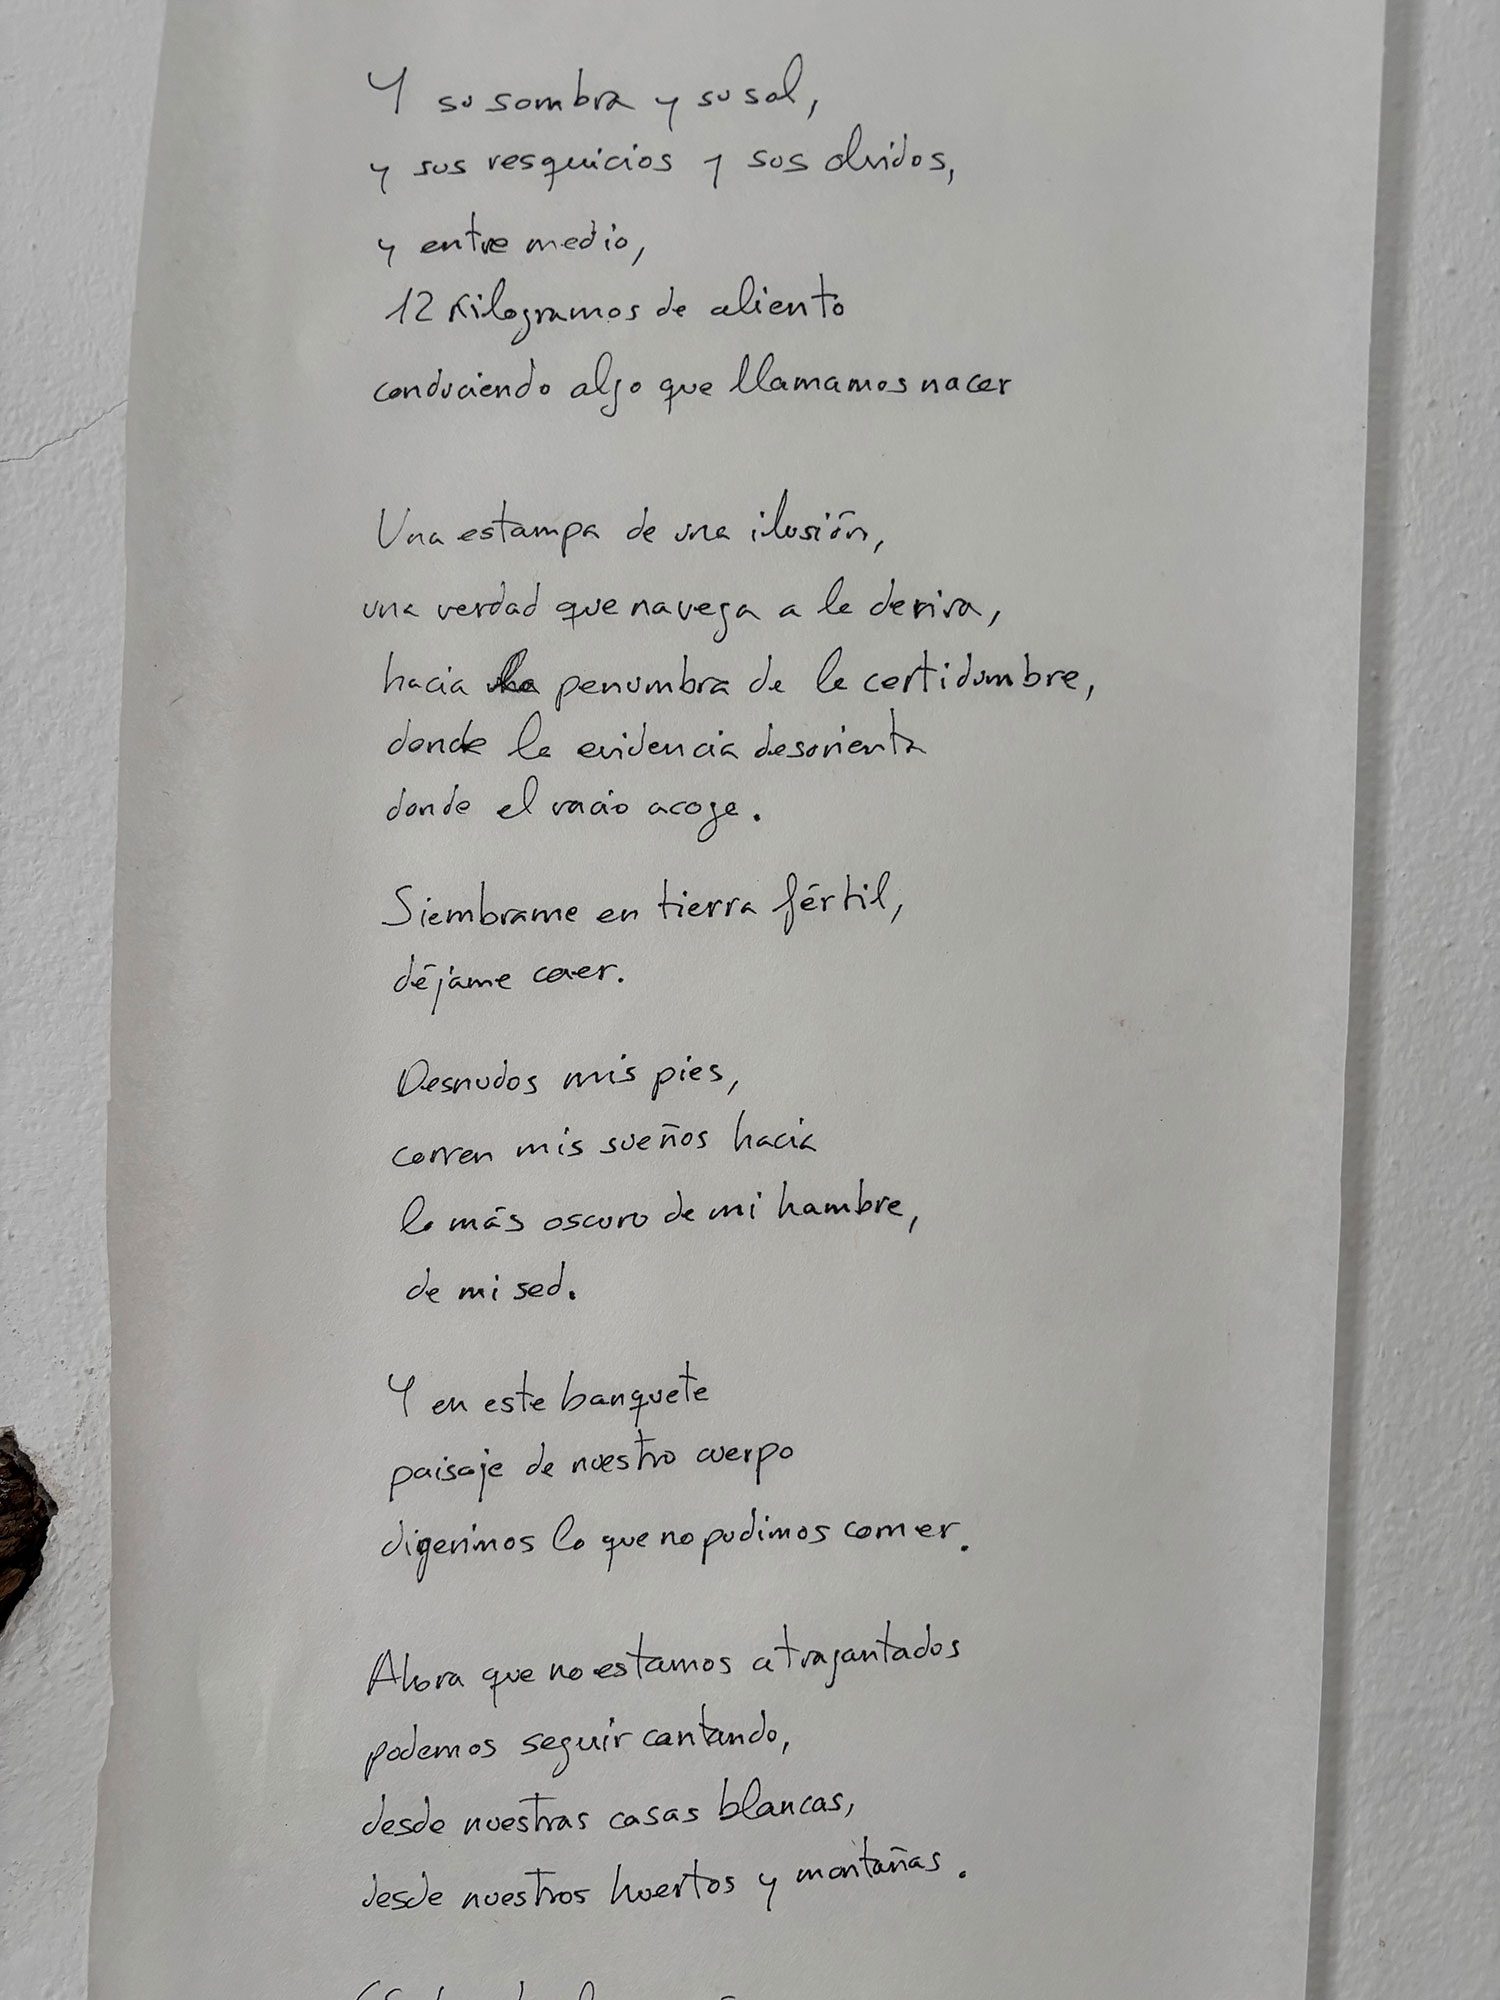 Y su sombra y su sal,
y sus resquicios y sus olvidos,
y entre medio,
12 Kilogramos de aliento
conduciendo algo que llamamos nacer
Una estampa de una ilusión,
una verdad que navega a la deriva,
hacia la penumbra de la certidumbre,
donde la evidencia desorienta
donde el vacio acoge.
Siembrame en tierra fértil,
déjame caer.
Desnudos mis pies,
corren mis sueños hacia
lo más oscuro de mi hambre,
de mi sed.
Y en este banquete
paisaje de nuestro cuerpo
digerimos lo que no pudimos comer.
Ahora que no estamos atragantados
podemos seguir cantando,
desde nuestras casas blancas,
desde nuestros huertos y montañas.